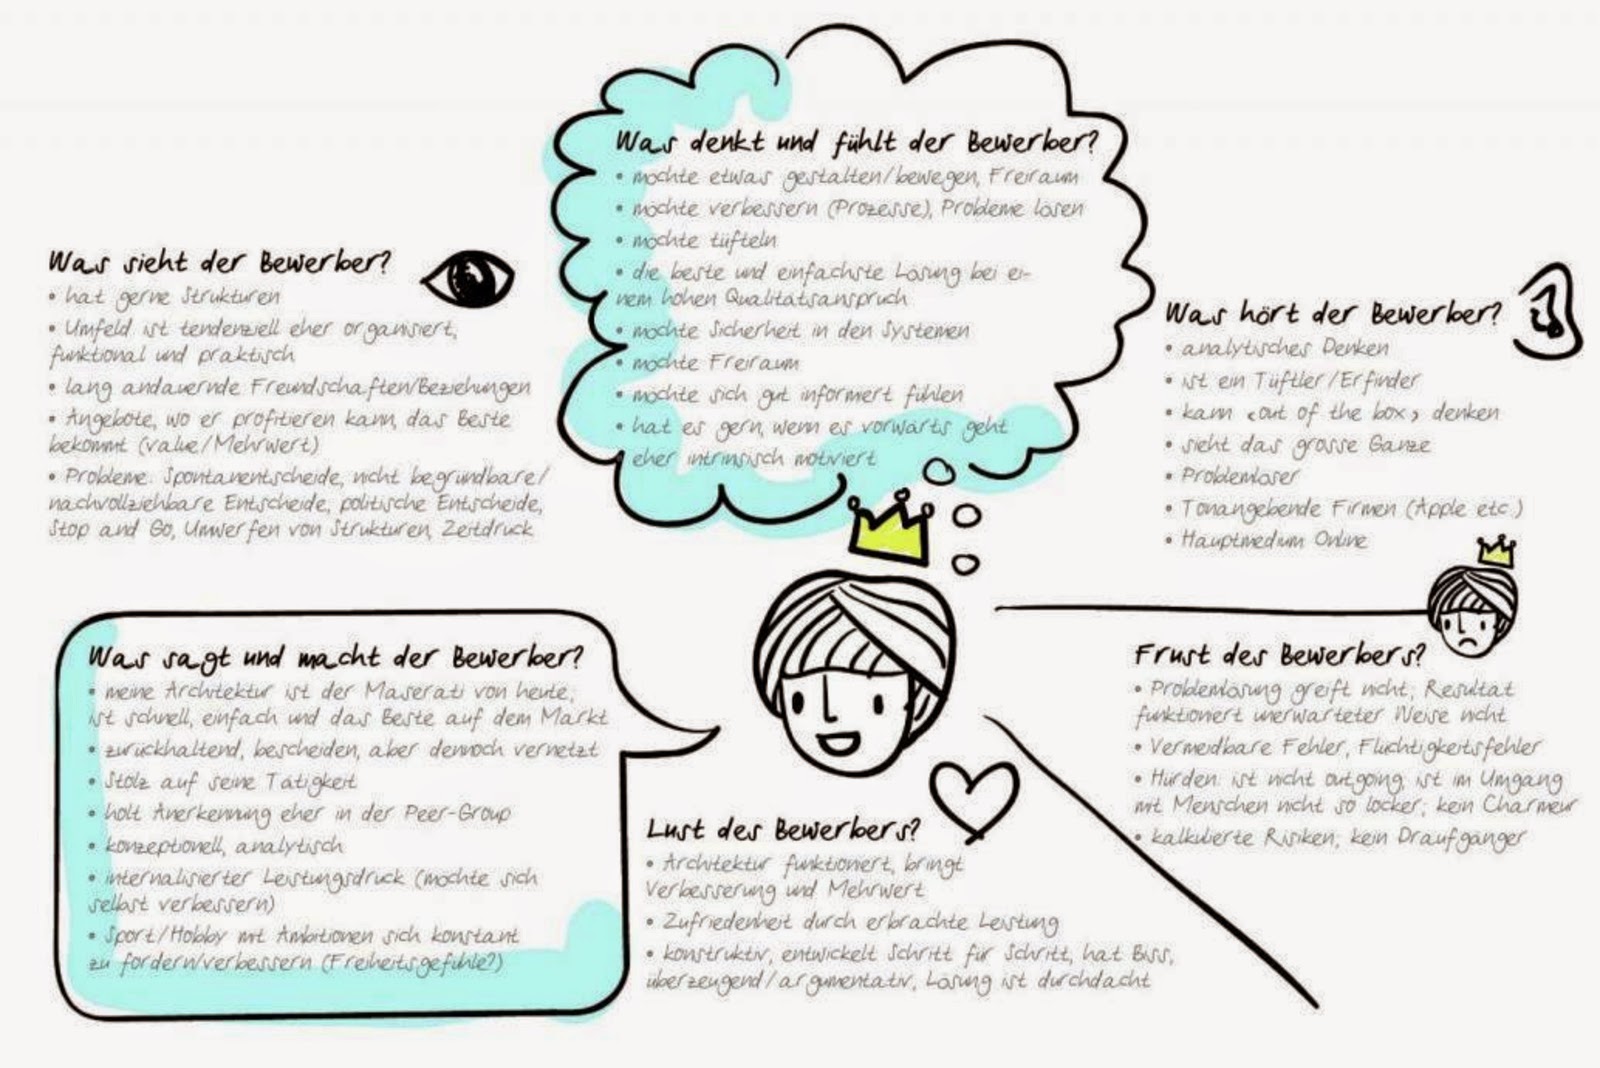 Was denkt und fühlt der Bewerber?
• möchte etwas gestalten/bewegen, Freiraum
• möchte verbessern (Prozesse), Probleme lösen
• möchte tüfteln
• die beste und einfachste Lösung bei ei-
nem hohen Qualitätsanspruch
• möchte Sicherheit in den Systemen
• möchte Freiraum
• möchte sich gut informert fühlen
• hat es gern, wenn es vorwärts geht
• eher intrinsisch motiviert
Was sieht der Bewerber?
• hat gerne Strukturen
• Umfeld ist tendenziell eher organisiert,
funktional und praktisch
• lang andauernde Freundschaften/Beziehungen
• Angebote, wo er profitieren kann, das Beste
bekommt (value/Mehrwert)
• Probleme: Spontanentscheide, nicht begründbare/
nachvollziehbare Entscheide, politische Entscheide,
Stop and Go, Umwerfen von Strukturen, Zeitdruck
Was hört der Bewerber?
• analytisches Denken
• ist ein Tüftler/Erfinder
• kann «out of the box» denken
• sieht das grosse Ganze
• Problemlöser
• Tonangebende Firmen (Apple etc.)
• Hauptmedium Online
Was sagt und macht der Bewerber?
• meine Architektur ist der Maserati von heute;
ist schnell, einfach und das Beste auf dem Markt
• zurückhaltend, bescheiden, aber dennoch vernetzt
• Stolz auf seine Tätigkeit
• holt Anerkennung eher in der Peer-Group
• konzeptionell, analytisch
• internalisierter Leistungsdruck (möchte sich
selbst verbessern)
• Sport/Hobby mit Ambitionen sich konstant
zu fordern/verbessern (Freiheitsgefühle?)
Lust des Bewerbers?
• Architektur funktioniert, bringt
Verbesserung und Mehrwert
• Zufriedenheit durch erbrachte Leistung
• konstruktiv, entwickelt Schritt für Schritt, hat Biss,
überzeugend/argumentativ, Lösung ist durchdacht
Frust des Bewerbers?
• Problemlösung greift nicht; Resultat
funktioniert unerwarteter Weise nicht
• Vermeidbare Fehler, Flüchtigkeitsfehler
• Hürden: ist nicht outgoing, ist im Umgang
mit Menschen nicht so locker; kein Charmeur
• kalkulierte Risiken; kein Draufgänger